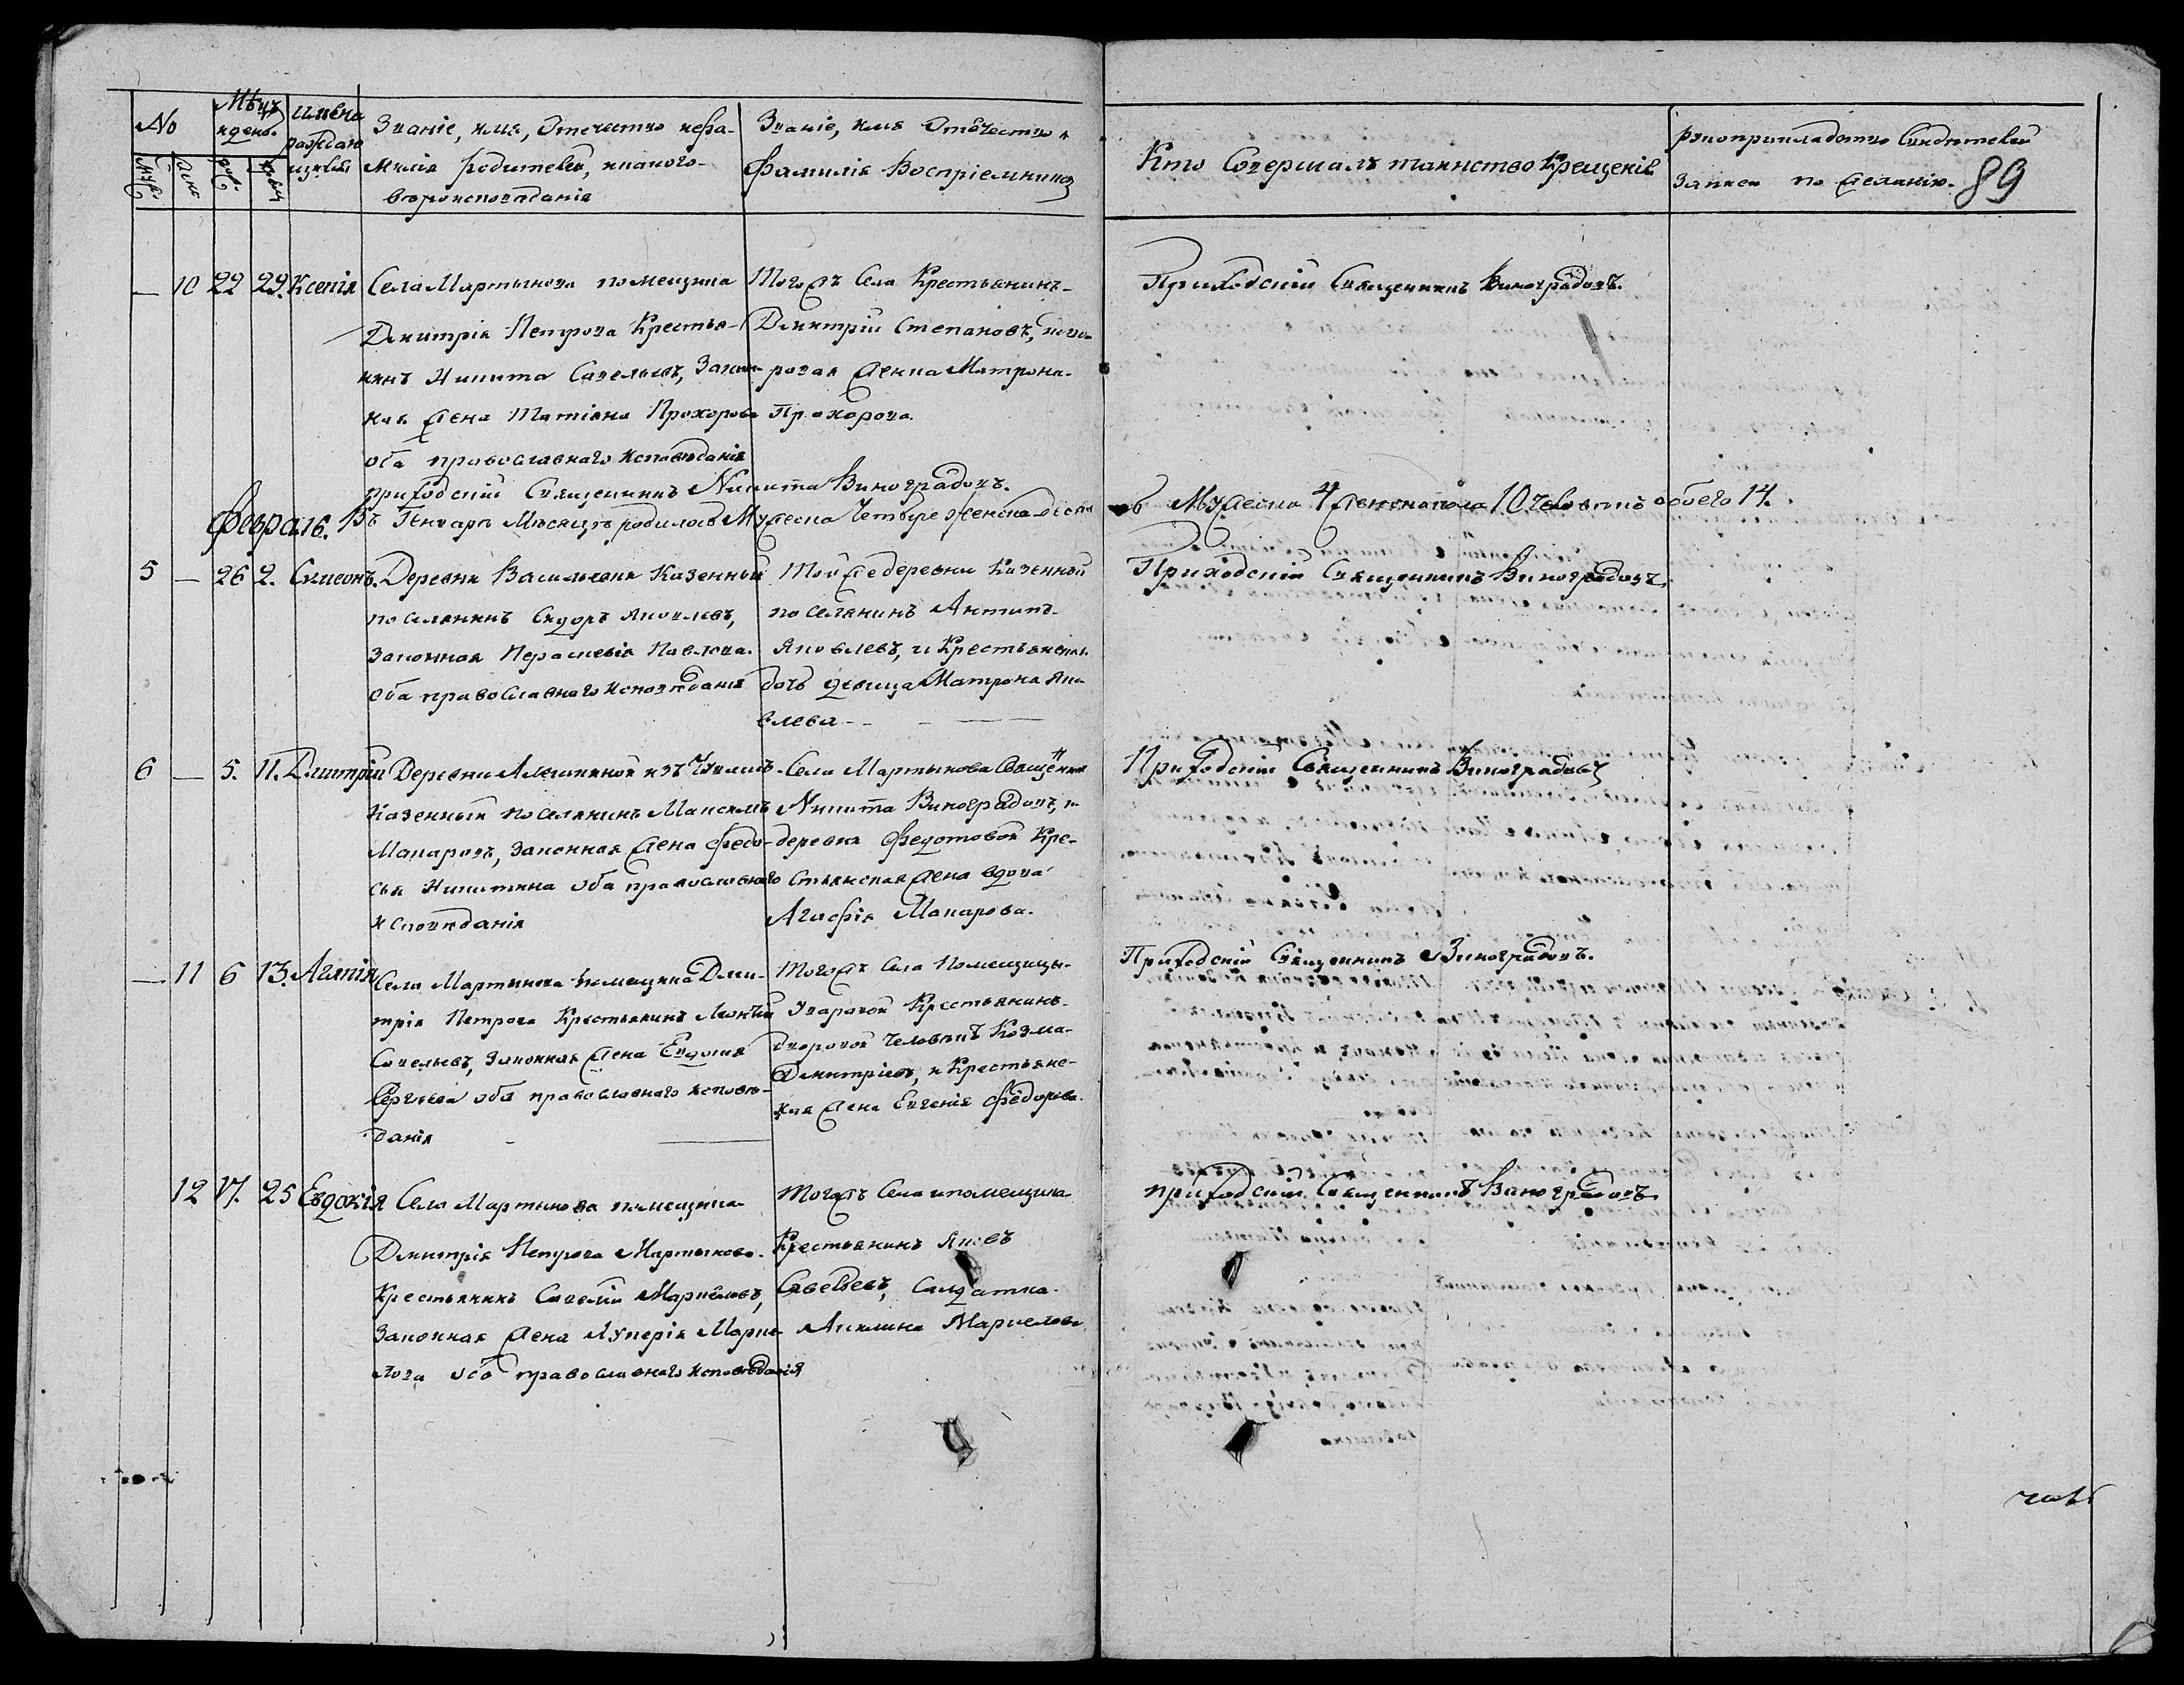 №
Мѣцъ
и день.
Имена
раждаю
щихся
Званіе, имя, Отечество и фа-
милія родителей, и какого-
вѣроисповѣданія
Званіе, имя Отѣчество и
Фамилія Воспріемниковъ
Кто Совершалъ таинство Крещенія
рукоприкладство Свидѣтелей
записи по желанію.
89
Муж.
Жен.
рож.
крещ
— 10 22 29. Ксенія
Села Мартынова помещика
Дмитрія Петрова Крестья-
нинъ Никита Савельевъ, Закон-
ная Жена Татіана Прохорова
оба православнаго исповѣданія
Тогожъ Села Крестьянинъ-
Дмитрій Степановъ,
Женка Матрона
Прохорова.
Приходскій Священникъ Виноградовъ.
приходскій Священникъ Никита Виноградовъ.
Февраль.
Въ Генварѣ Мѣсяцѣ родилось Мужеска Четыре Женска десять
Мужеска 4 женска пола 10 человѣкъ обоего 14.
5 — 26 2. Симеонъ.
Деревни Васильевки Казенный
поселянинъ Сидоръ Яковлевъ,
Законная Параскевія Павлова.
Оба православнаго исповѣданія
Той же деревни Казенной
поселянинъ Антипъ
Яковлевъ, и Крестьянская
дочь девица Матрона Яко-
влева - -
Приходскій Священникъ Виноградовъ.
6 — 5. 11. Дмитрій
Деревни
Казенный поселянинъ Максимъ
Макаровъ, законная Жена Федо-
сья Никитина оба православнаго
исповѣданія
Села Мартынова Священникъ
Никита Виноградовъ, и
деревни Федотовой Кре-
стьянская Жена вдова
Агафія Макарова.
Приходскій Священникъ Виноградовъ
— 11 6 13. Агапія
Села Мартынова помещика Дми-
трія Петрова Крестьянинъ
Савельевъ, Законная Жена Евдокия
Сергѣева оба православнаго исповѣ-
данія
Тогожъ Села Помещицы
Уваровой Крестьянинъ
дворовой человѣкъ Козма
Дмитріевъ, и Крестьянс-
кая Жена Евгенія Федорова.
Приходскій Священникъ Виноградовъ.
12 17. 25 Евдокія
Села Мартынова помещика
Дмитрія Петрова Мартынова
Крестьянинъ Савелій Маркеловъ,
Законная Жена Лукерія Марке-
лова оба православнаго исповѣданія
Тогожъ Села и помещика
Крестьянинъ Яковъ
Савельевъ, Салдатка
Акилина Маркелова
приходскій Священникъ Виноградовъ.